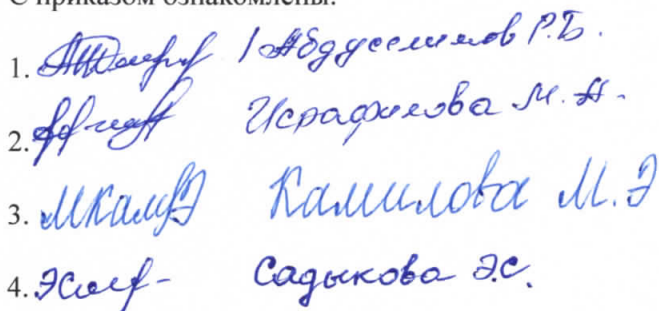 С приказом ознакомлены:
1. / Абдуселимов Р.Б.
2. Исрафилова М.А.
3. МКамиЭ Камилова М.Э
4. Садыкова Э.С.